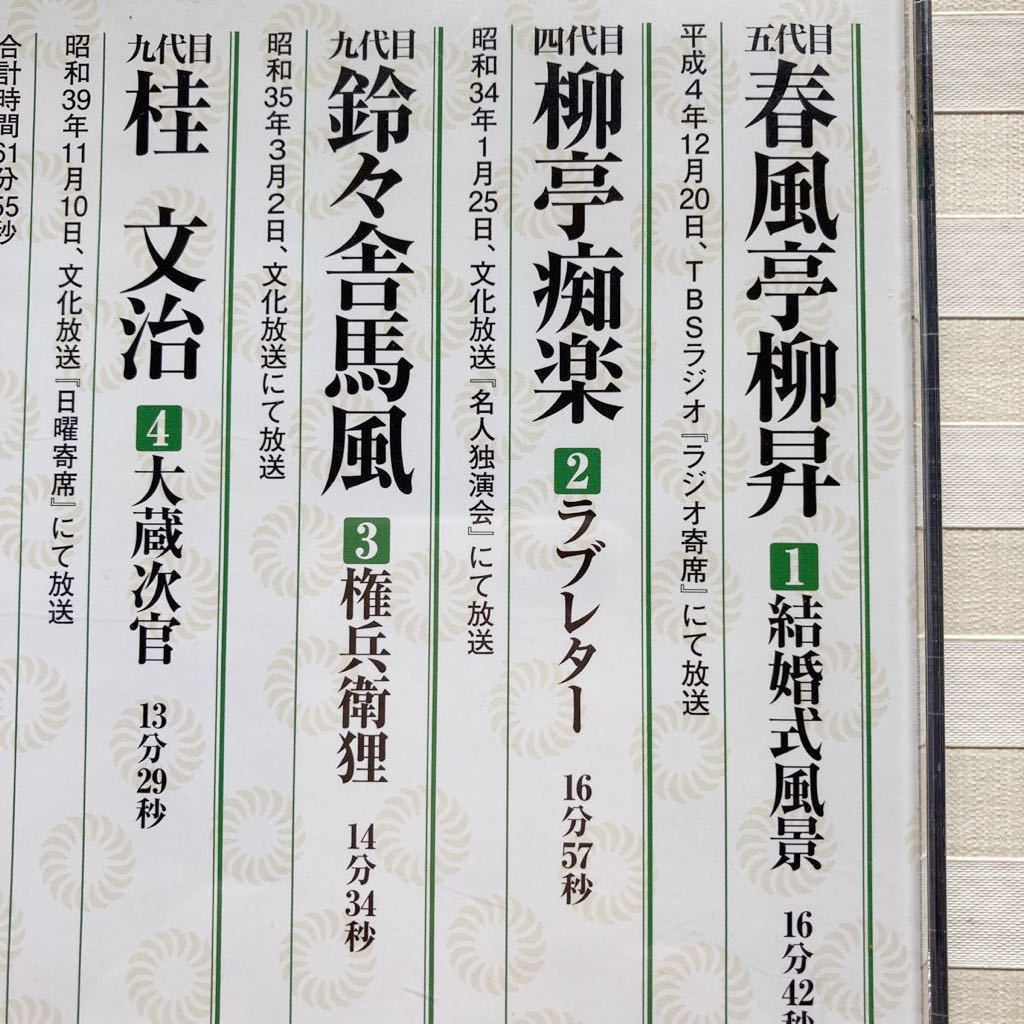 五代目 春風亭柳昇 1 結婚式風景 16分42秒
平成4年12月20日、TBSラジオ『ラジオ寄席』にて放送
四代目 柳亭痴楽 2 ラブレター 16分57秒
昭和34年1月25日、文化放送『名人独演会』にて放送
九代目 鈴々舎馬風 3 権兵衛狸 14分34秒
昭和35年3月2日、文化放送にて放送
九代目 桂 文治 4 大蔵次官 13分29秒
昭和39年11月10日、文化放送『日曜寄席』にて放送
合計時間61分55秒